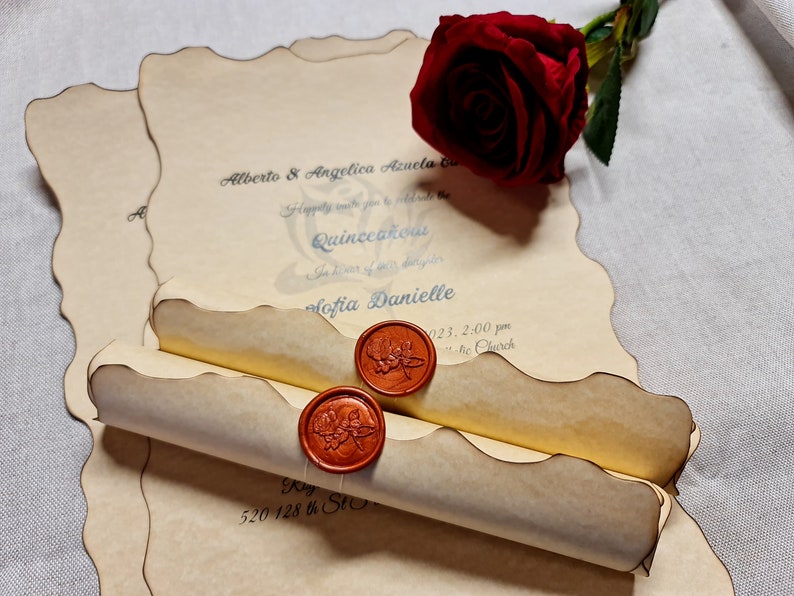 Alberto & Angelica Azuela
Happily invite you to celebrate the
Quinceañera
In honor of their daughter
Sofia Danielle
2023, 2:00 pm
Church
520 128 th St
A